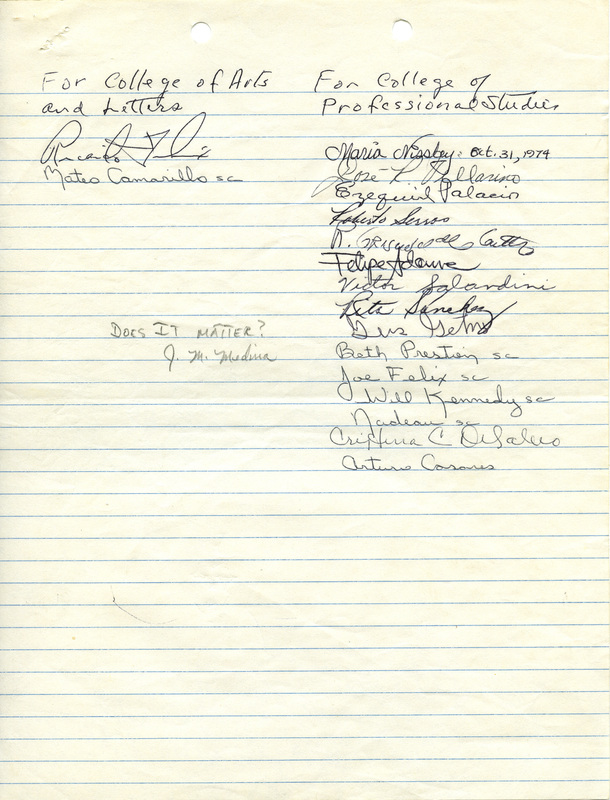 For College of Arts
and Letters
Mateo Camarillo sc
DOES IT MATTER?
J. M. Medina
For College of
Professional Studies
Maria : Oct. 31, 1974
José
Ezequiel Palacio
Roberto Serros
R. Griswold del
Felipe
Victor Salandini
Rita Sanchez
Gus
Beth Preston sc
Joe Felix sc
Will Kennedy sc
Nadeau sc
C.
Arturo Casares